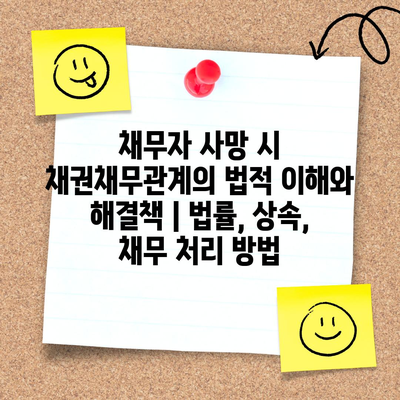 채무자 사망 시
채권채무관계의 법적 이해와
해결책 | 법률, 상속,
채무 처리 방법